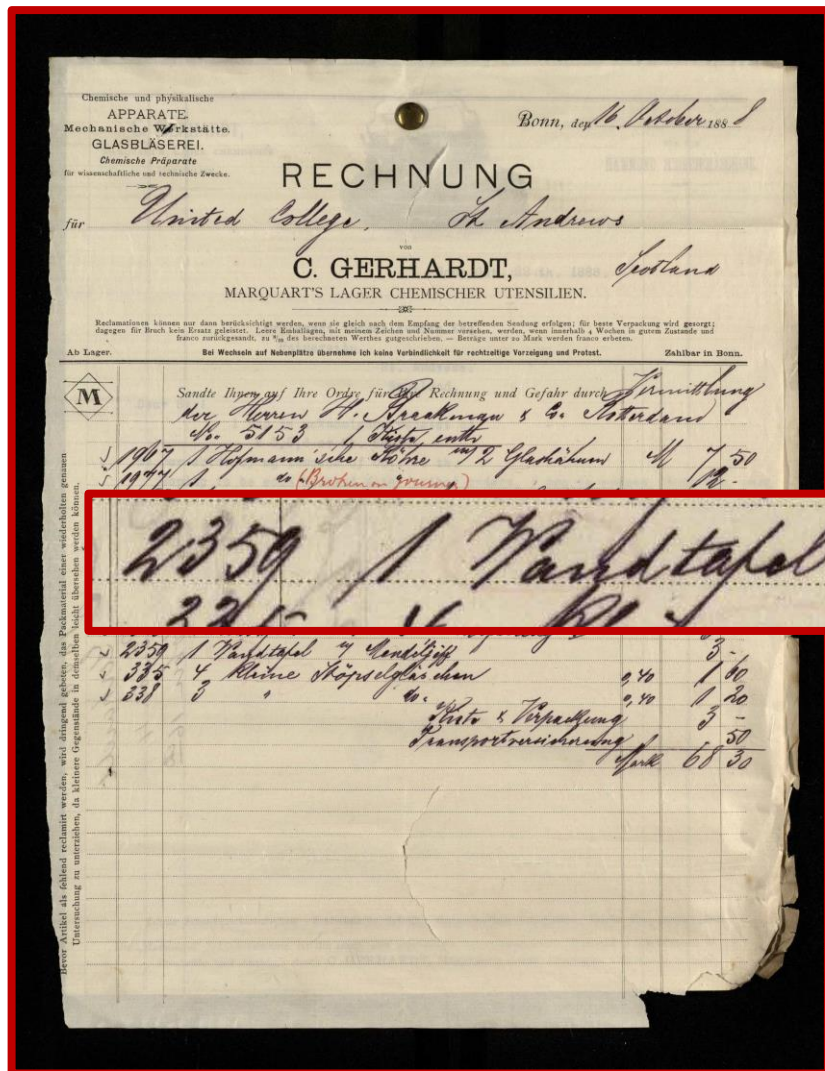 Chemische und physikalische
APPARATE.
Mechanische Werkstätte.
GLASBLÄSEREI.
Chemische Präparate
für wissenschaftliche und technische Zwecke.
Bonn, den 16. October 1888
RECHNUNG
für United College, St. Andrews
von
C. GERHARDT, Scotland
MARQUART'S LAGER CHEMISCHER UTENSILIEN.
Reclamationen können nur dann berücksichtigt werden, wenn sie gleich nach dem Empfang der betreffenden Sendung erfolgen; für beste Verpackung wird gesorgt;
dagegen für Bruch kein Ersatz geleistet. Leere Emballagen, mit meinem Zeichen und Nummer versehen, werden, wenn innerhalb 4 Wochen in gutem Zustande und
franco zurückgesandt, zu des berechneten Werthes gutgeschrieben. — Beträge unter 20 Mark werden franco erbeten.
Ab Lager. Bei Wechseln auf Nebenplätze übernehme ich keine Verbindlichkeit für rechtzeitige Vorzeigung und Protest. Zahlbar in Bonn.
M
Sandte Ihnen auf Ihre Ordre für Ihre Rechnung und Gefahr durch Vermittlung
der Herren H. Braakman & Co. Rotterdam
No. 5153 1 Kiste enth
1967 1 Hofmann'sche Röhre m/2 Glashähnen M 7 50
1977 1 do (Broken on journey) 12 -
2359 1 Wandtafel
2359 1 Wandtafel v Mendelejeff 3 -
335 4 kleine Stöpselgläschen 0,40 1 60
338 3 " do. 0,40 1 20
Kiste & Verpackung 3 -
Transportversicherung 50
Mark 68 30
Bevor Artikel als fehlend reclamirt werden, wird dringend gebeten, das Packmaterial einer wiederholten genauen
Untersuchung zu unterziehen, da kleinere Gegenstände in demselben leicht übersehen werden können.